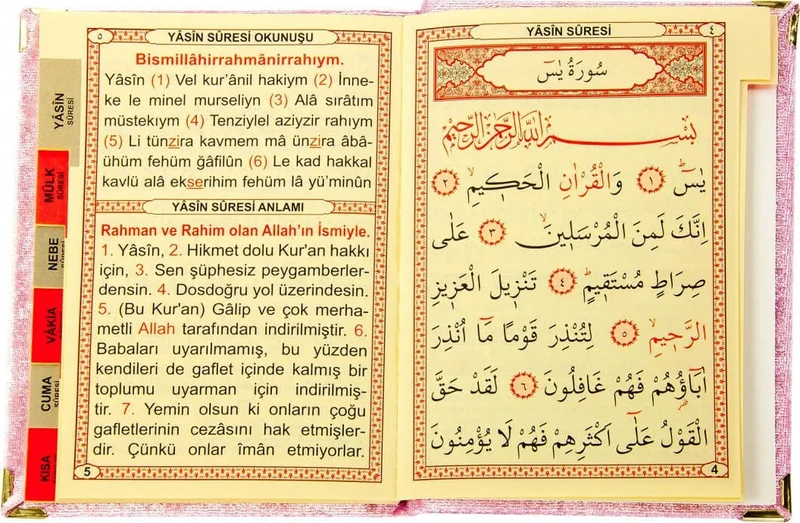 ٥
YÂSİN SÛRESİ OKUNUŞU
Bismillâhirrahmânirrahıym.
Yâsîn (1) Vel kur'ânil hakiym (2) İnne-
ke le minel murseliyn (3) Alâ sırâtım
müstekıym (4) Tenziylel aziyzir rahıym
(5) Li tünzira kavmem mâ ünzira âbâ-
ühüm fehüm ğafilûn (6) Le kad hakkal
kavlü alâ ekserihim fehüm lâ yü'minûn
YÂSÎN SÛRESİ ANLAMI
Rahman ve Rahim olan Allah'ın İsmiyle.
1. Yâsîn, 2. Hikmet dolu Kur'an hakkı
için, 3. Sen şüphesiz peygamberler-
densin. 4. Dosdoğru yol üzerindesin.
5. (Bu Kur'an) Gâlip ve çok merha-
metli Allah tarafından indirilmiştir. 6.
Babaları uyarılmamış, bu yüzden
kendileri de gaflet içinde kalmış bir
toplumu uyarman için indirilmiş-
tir. 7. Yemin olsun ki onların çoğu
gafletlerinin cezâsını hak etmişler-
dir. Çünkü onlar îmân etmiyorlar.
5
YÂSÎN SÛRESİ
MÜLK SÛRESİ
NEBE SÛRESİ
VÂKIA
CUMA SÛRESİ
KISA
YÂSÎN SÛRESİ
٤
سُورَةُ يٰسٓ
بِسْمِ اللّٰهِ الرَّحْمٰنِ الرَّحِيمِ
يٰسٓ ۚ ﴿١﴾ وَالْقُرْاٰنِ الْحَكِيمِۙ ﴿٢﴾
اِنَّكَ لَمِنَ الْمُرْسَلِينَۙ ﴿٣﴾ عَلٰى
صِرَاطٍ مُسْتَقِيمٍۜ ﴿٤﴾ تَنْزِيلَ الْعَزِيزِ
الرَّحِيمِۙ ﴿٥﴾ لِتُنْذِرَ قَوْمًا مَٓا اُنْذِرَ
اٰبَٓاؤُ۬هُمْ فَهُمْ غَافِلُونَ ﴿٦﴾ لَقَدْ حَقَّ
الْقَوْلُ عَلٰٓى اَكْثَرِهِمْ فَهُمْ لَا يُؤْمِنُونَ
4